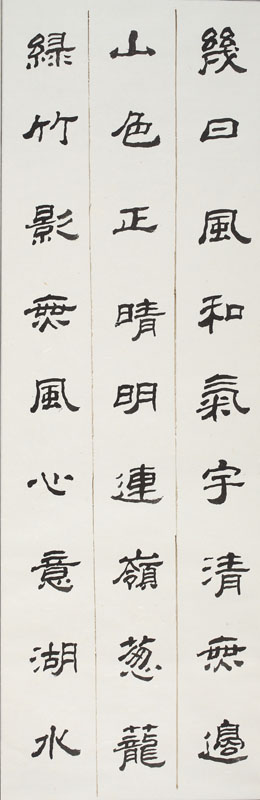 幾日風和氣宇清無邊
山色正晴明連嶺葱蘢
緑竹影無風心意湖水